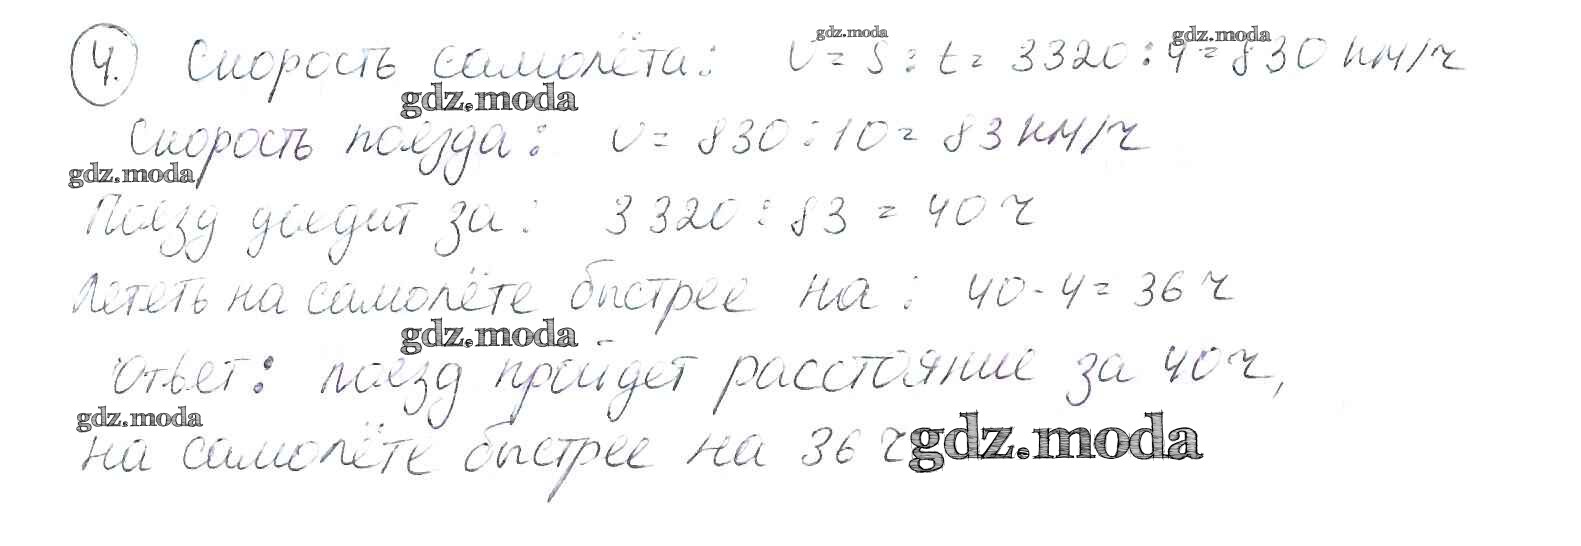 4. Скорость самолёта: v = s : t = 3320 : 4 = 830 км/ч
gdz.moda
gdz.moda
gdz.moda
Скорость поезда: v = 830 : 10 = 83 км/ч
gdz.moda
Поезд доедит за: 3320 : 83 = 40 ч
Лететь на самолёте быстрее на: 40 - 4 = 36 ч
gdz.moda
Ответ: поезд пройдет расстояние за 40 ч,
gdz.moda
на самолёте быстрее на 36 ч
gdz.moda